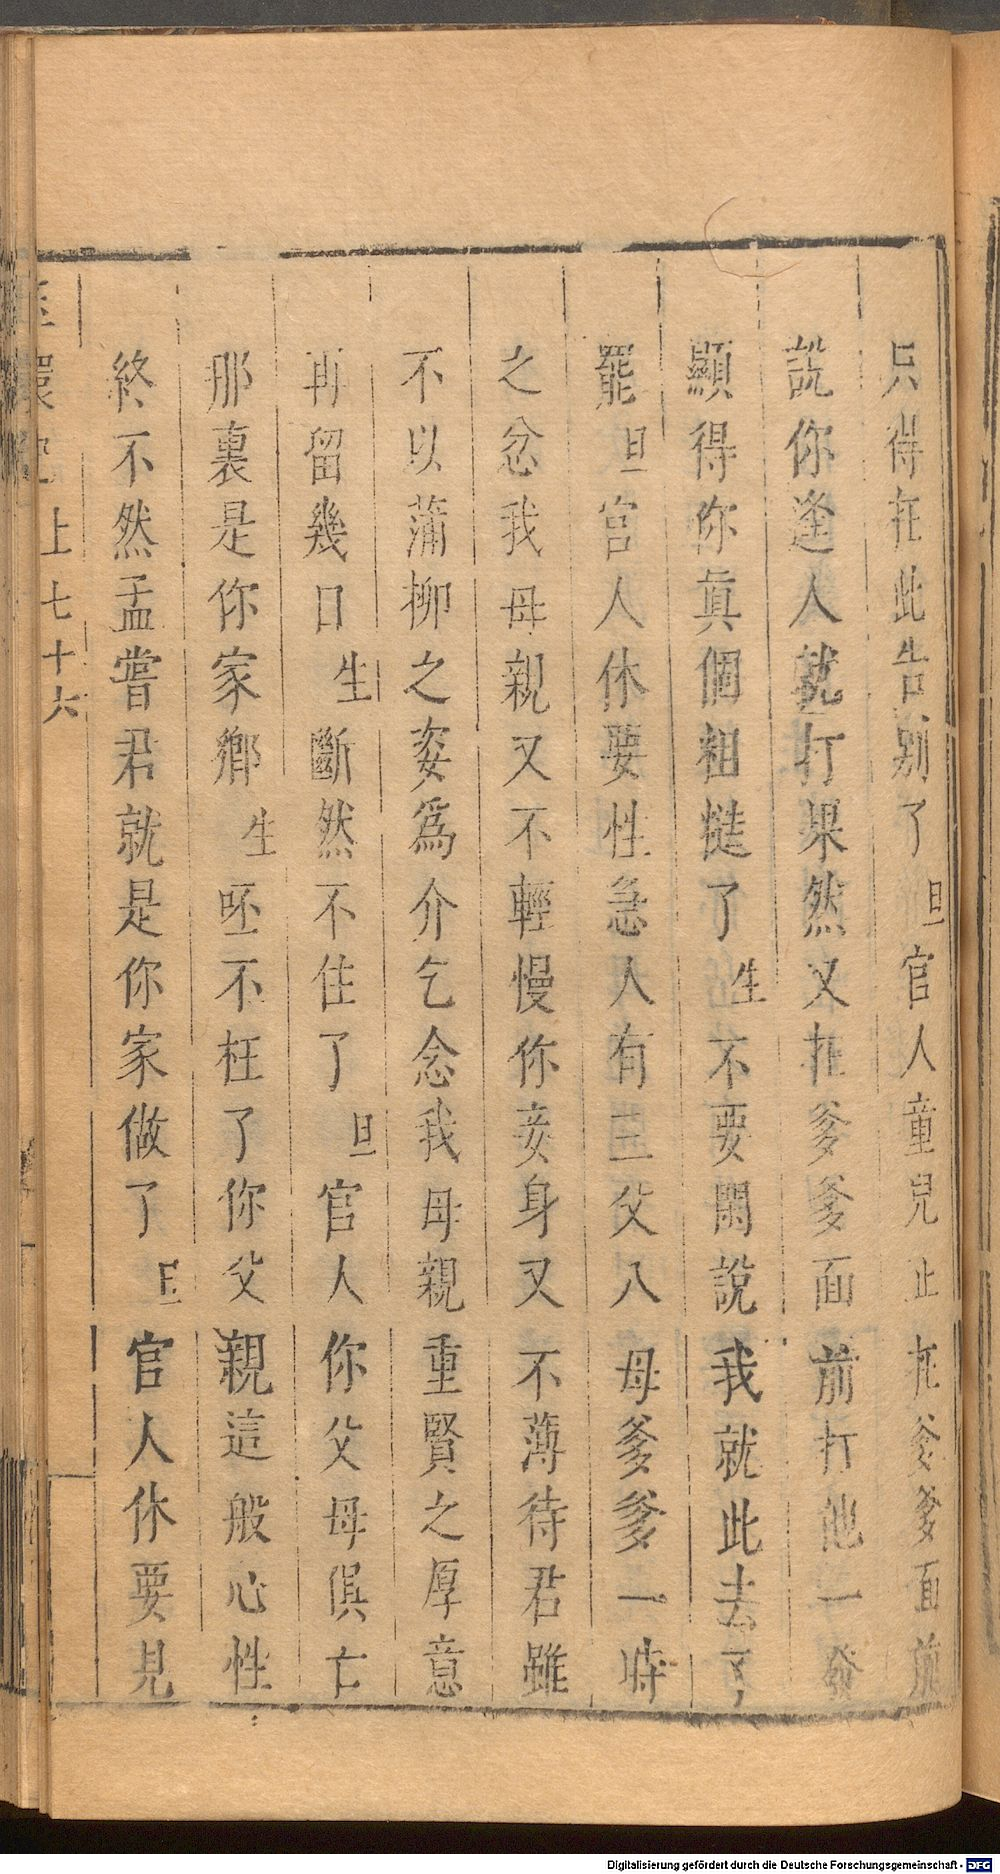 只得在此告别了旦官人童兒止在爹爹面前
說你逢人就打果然又在爹爹面前打他一發
顯得你眞個粗糙了生不要閑說我就此去了
罷旦官人休要性急人有三父八母爹爹一時
之忿我母親又不輕慢你妾身又不薄待君雖
不以蒲柳之姿爲介乞念我母親重賢之厚意
再留幾日生斷然不住了旦官人你父母俱亡
那裏是你家鄉生呸不枉了你父親這般心性
終不然孟嘗君就是你家做了旦官人休要見
玉環記上七十六
Digitalisierung gefördert durch die Deutsche Forschungsgemeinschaft - DFG